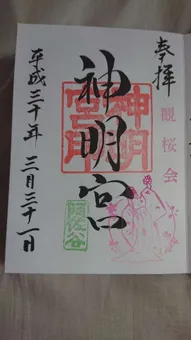 奉拝
観桜会
神明宮
神明宮
阿佐ヶ谷
平成三十年三月三十一日